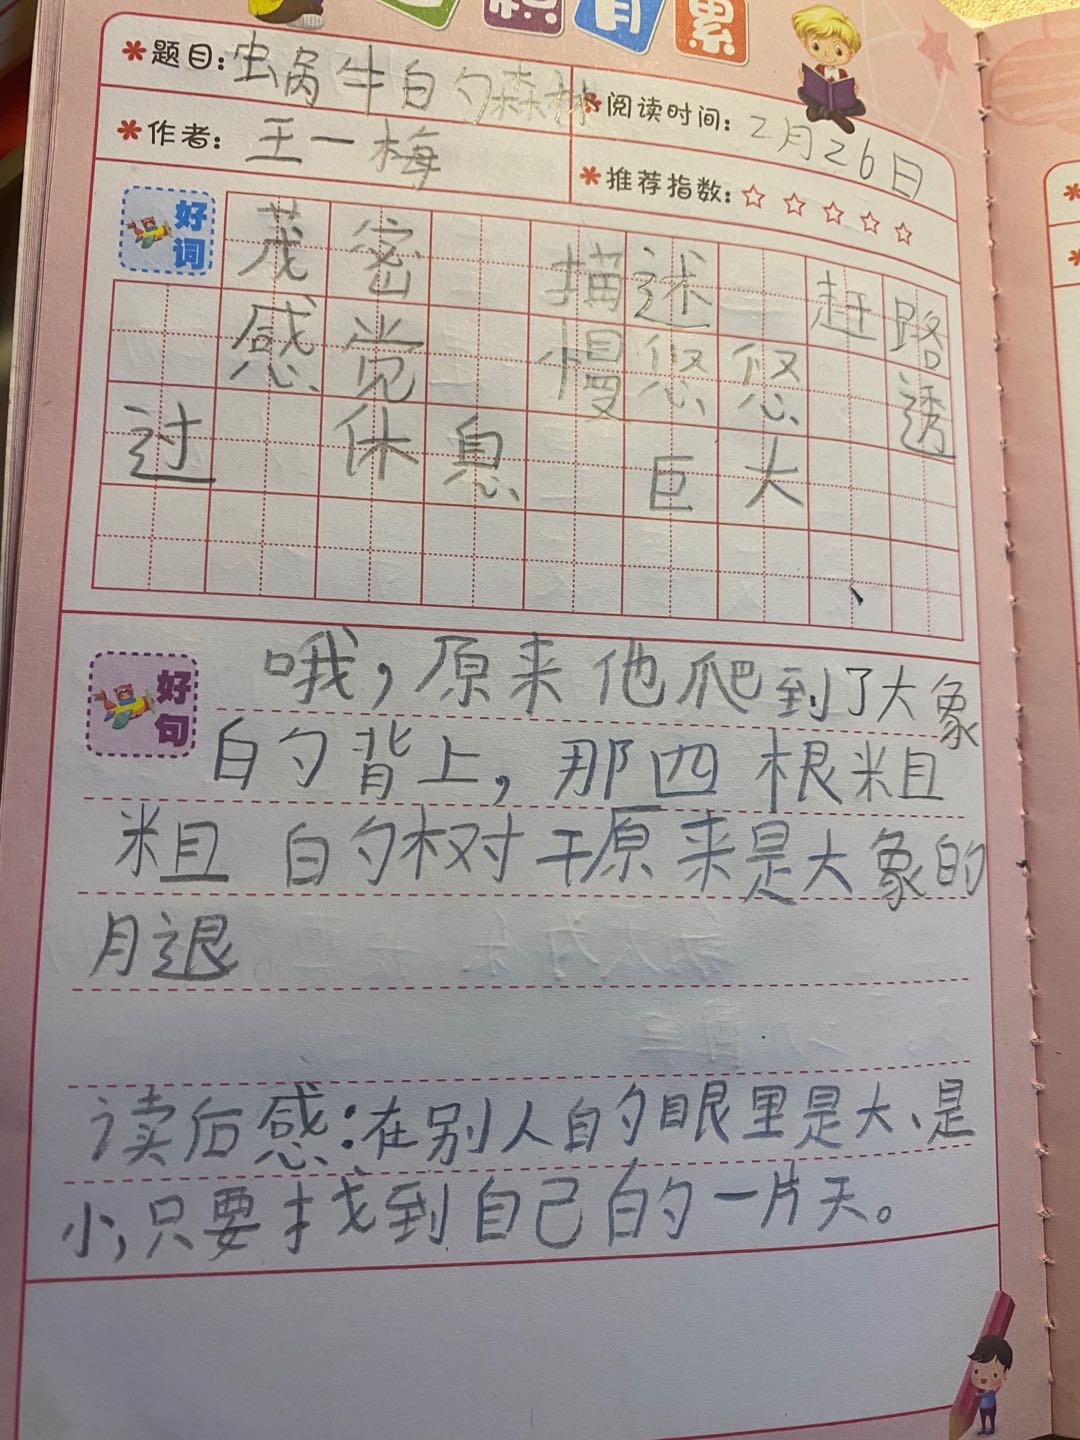 积月累
*题目：蜗牛的森林
*阅读时间：2月26日
*作者：王一梅
*推荐指数：☆☆☆☆☆
好词
茂密 描述 赶路
感觉 慢悠悠 透
过 休息 巨大
好句
哦，原来他爬到了大象
的背上，那四根粗
粗的树干原来是大象的
腿
读后感：在别人的眼里是大、是
小，只要找到自己的一片天。